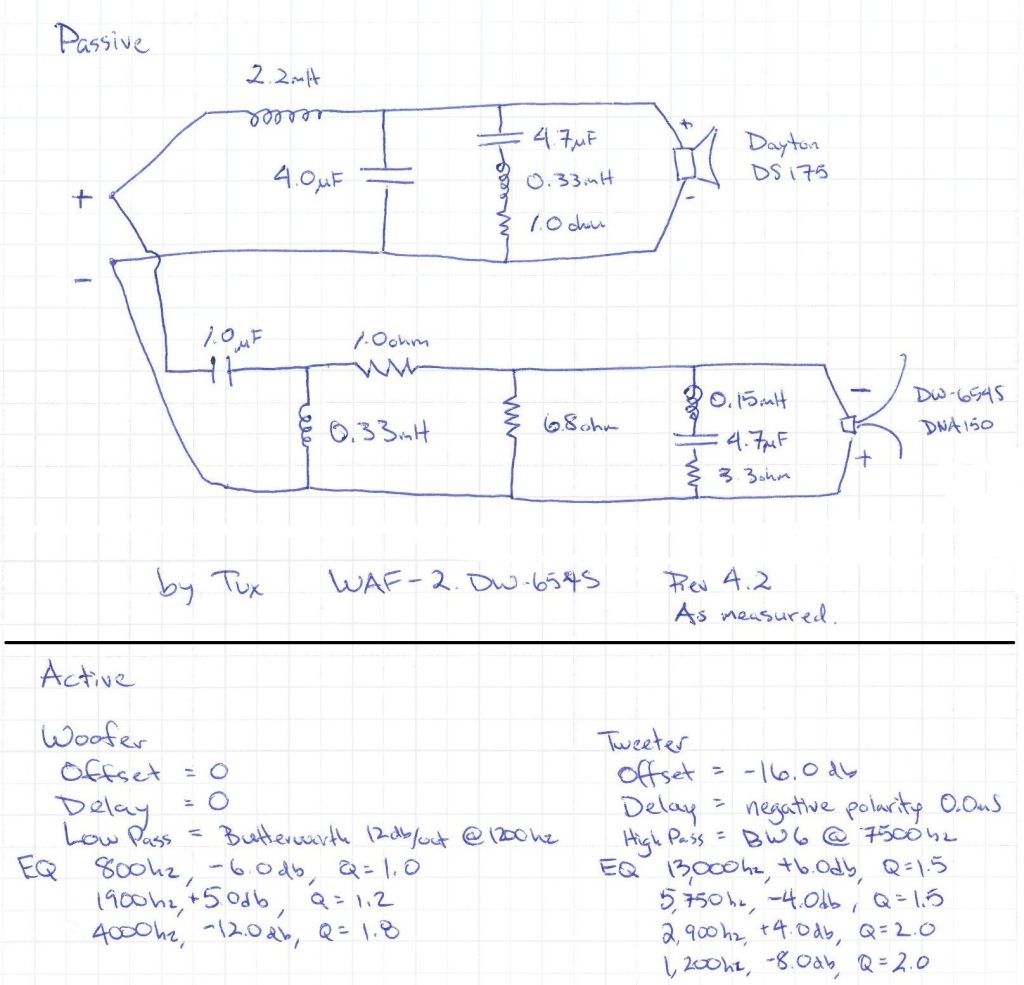 Passive
2.2mH
4.7µF
4.0µF
0.33mH
1.0 ohm
+
-
Dayton
DS175
+
-
1.0µF
1.0ohm
0.33mH
6.8ohm
0.15mH
4.7µF
3.3ohm
-
+
DW-6545
DNA150
by Tux WAF-2. DW-6545 Rev 4.2
As measured.
Active
Woofer
Offset = 0
Delay = 0
Low Pass = Butterworth 12db/oct @ 1200hz
EQ 800hz, -6.0db, Q=1.0
1900hz, +5.0db, Q=1.2
4000hz, -12.0db, Q=1.8
Tweeter
Offset = -16.0 db
Delay = negative polarity 0.0mS
High Pass = BW6 @ 7500hz
EQ 13,000hz, +6.0db, Q=1.5
5,750hz, -4.0db, Q=1.5
2,900hz, +4.0db, Q=2.0
1,200hz, -8.0db, Q=2.0